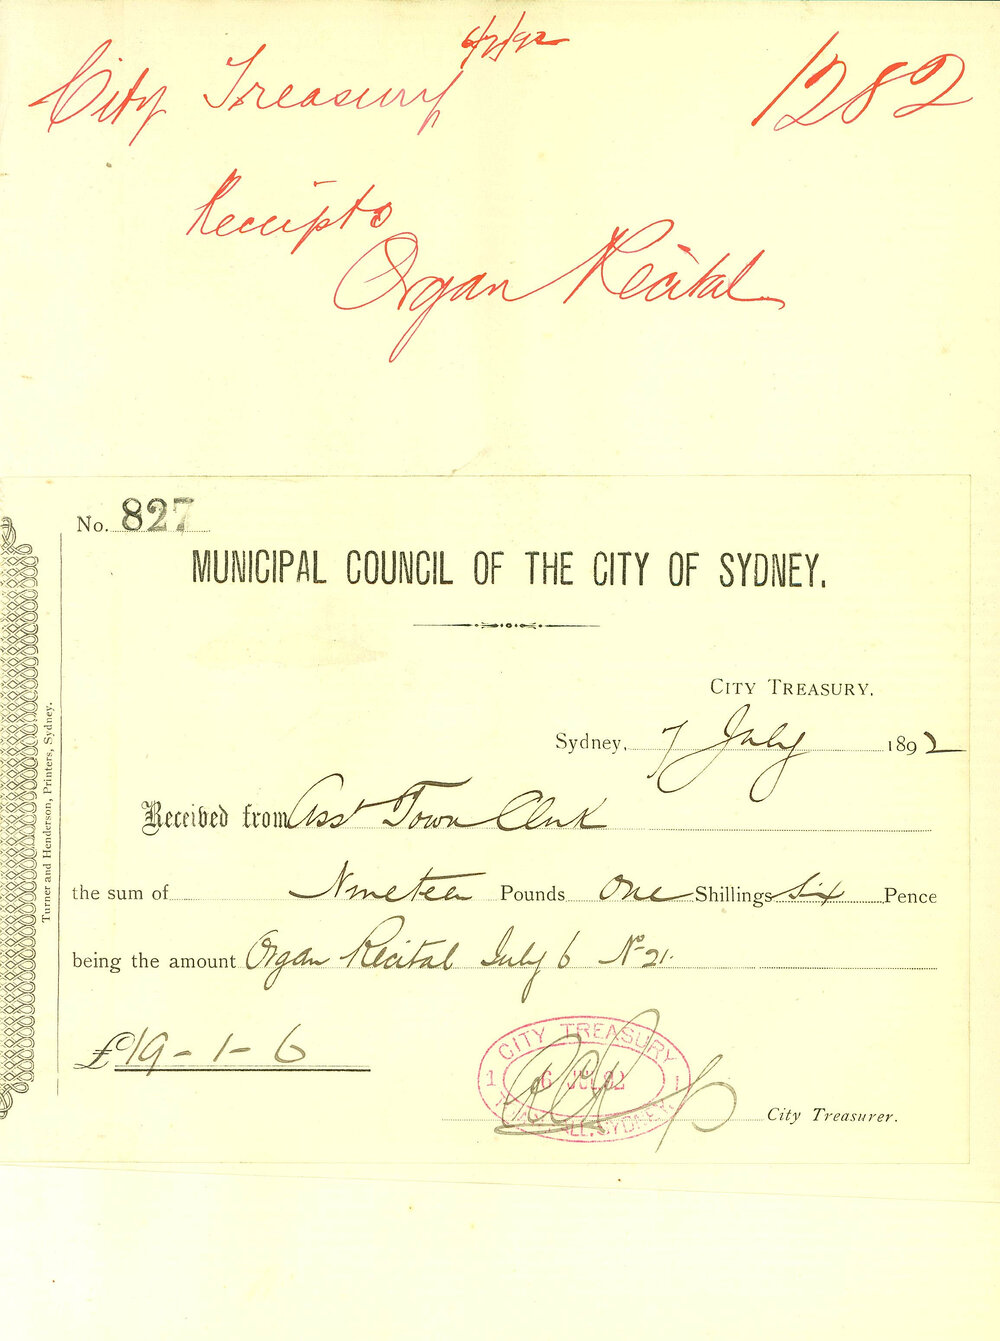 6/7/92
City Treasury
1282
Receipts
Organ Recital
No. 827
MUNICIPAL COUNCIL OF THE CITY OF SYDNEY.
CITY TREASURY.
Sydney, 7 July 1892
Received from Asst Town Clerk
the sum of Nineteen Pounds One Shillings Six Pence
being the amount Organ Recital July 6 No 21.
£19-1-6
CITY TREASURY
1 6 JUL 92 1
TOWN HALL, SYDNEY.
City Treasurer.
Turner and Henderson, Printers, Sydney.